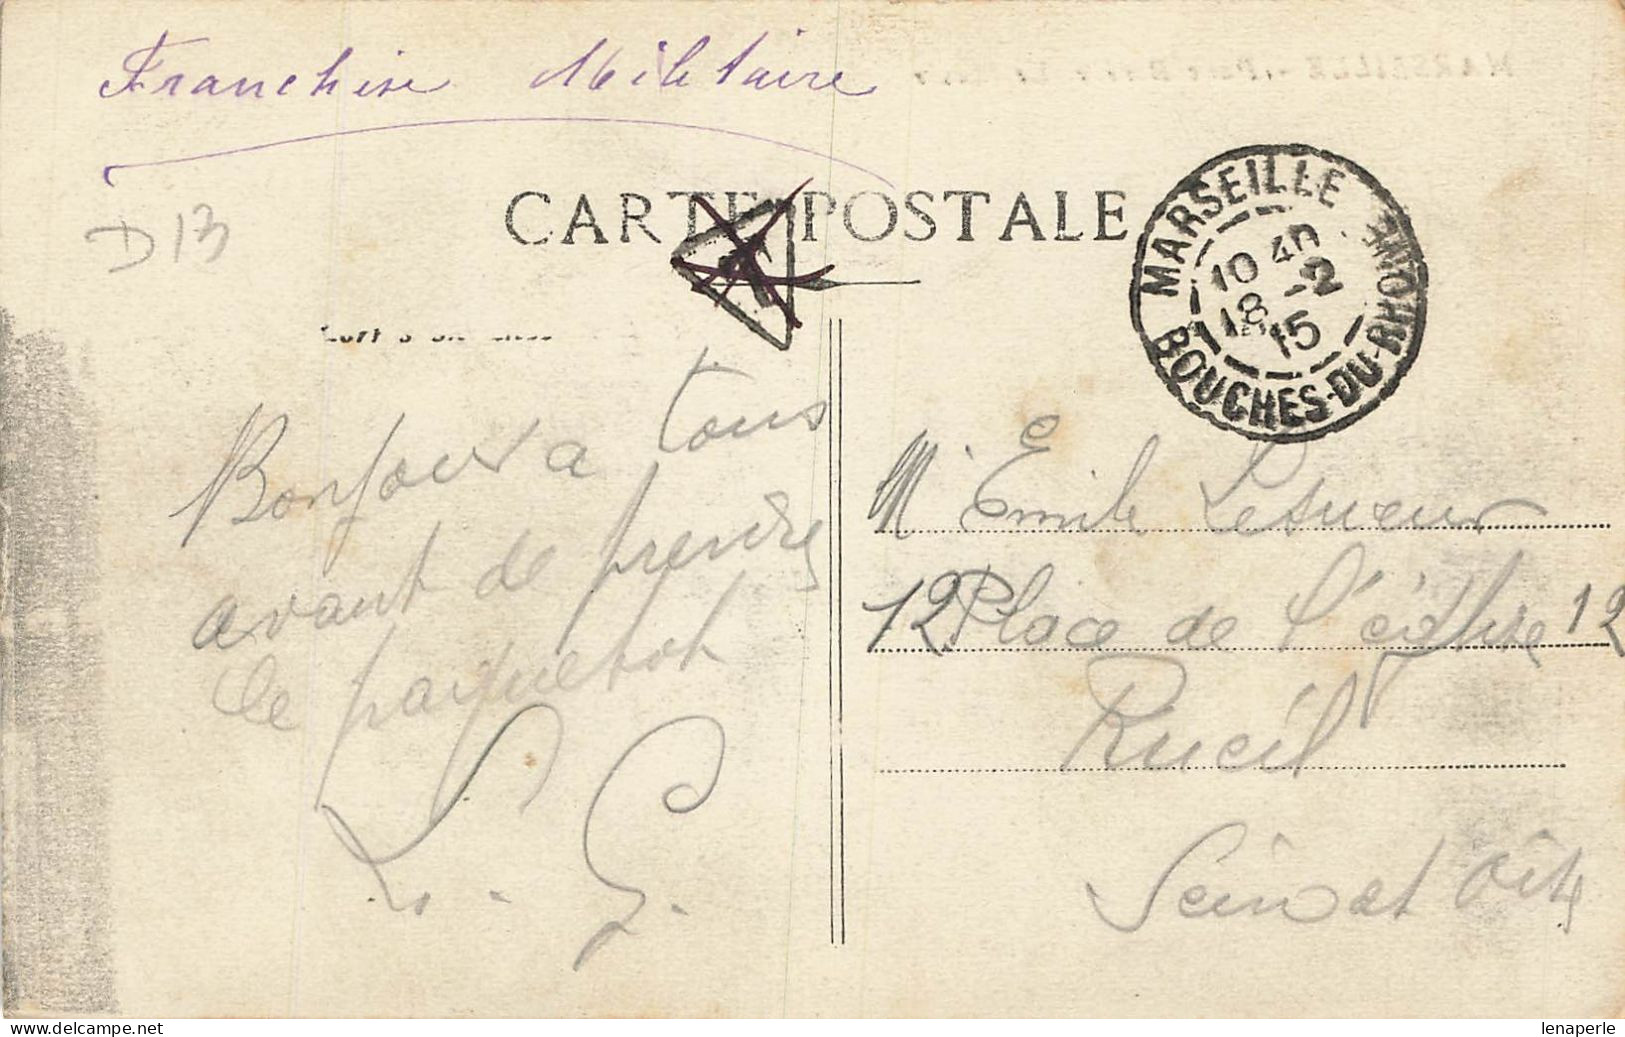 Franchise Militaire
D13
CARTE POSTALE
MARSEILLE
10 40
18 -2
15
BOUCHES-DU-RHONE
Bonjour a tous
avant de prendre
le paquebot
L. G.
Mr Emile Lesueur
12 Place de l'église 12
Rueil
Seine et Oise
www.delcampe.net
lenaperle